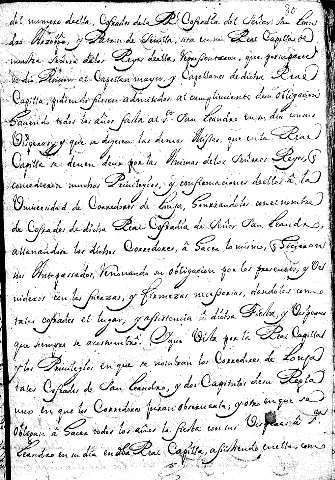 30
del numero della, Cofrades de la Rl. Cofradia del Señor San Lean
dro Arzobispo, y Patron de Sevilla, sita en mi Real Capilla de
nuestra Señora de los Reyes
de dicha Real
Capilla, pidiendo fuesen admitidos al cumplimiento de su obligacion
haciendo todos los años fiesta al Sr. San Leandro en su dia con sus
Visperas, y que se digesen las demas Misas, que en la Real
Capilla se deven decir por las Animas de los Señores Reyes, q
concedieron muchos Privilegios, y confirmaciones de ellos à la
Universidad de Corredores de Lonja, honrandolos con el nombre
de Cofrades de dicha Real Cofradia de Señor San Leandro,
allanandose los dichos Corredores, à hacer lo mismo, q hicieron
sus Antepasados, renovando su obligacion por los presentes, y Ve
nideros con las fuerzas, y firmezas necesarias, dandoles como
tales cofrades el lugar, y asistencia à dicha Fiesta, y Visperas
que siempre se acostumbrò. Y que Vista por la Real Capilla
y los Privilegios en que se nombran los Corredores de Lonja
tales Cofrades de San Leandro, y dos Capitulos de su Regla
uno en que los Corredores juran observarla, y otro en que se
obligan à hacer todos los años la fiesta con sus Visperas à Sn.
Leandro en su dia en dha Real Capilla, asistiendo à ella, con